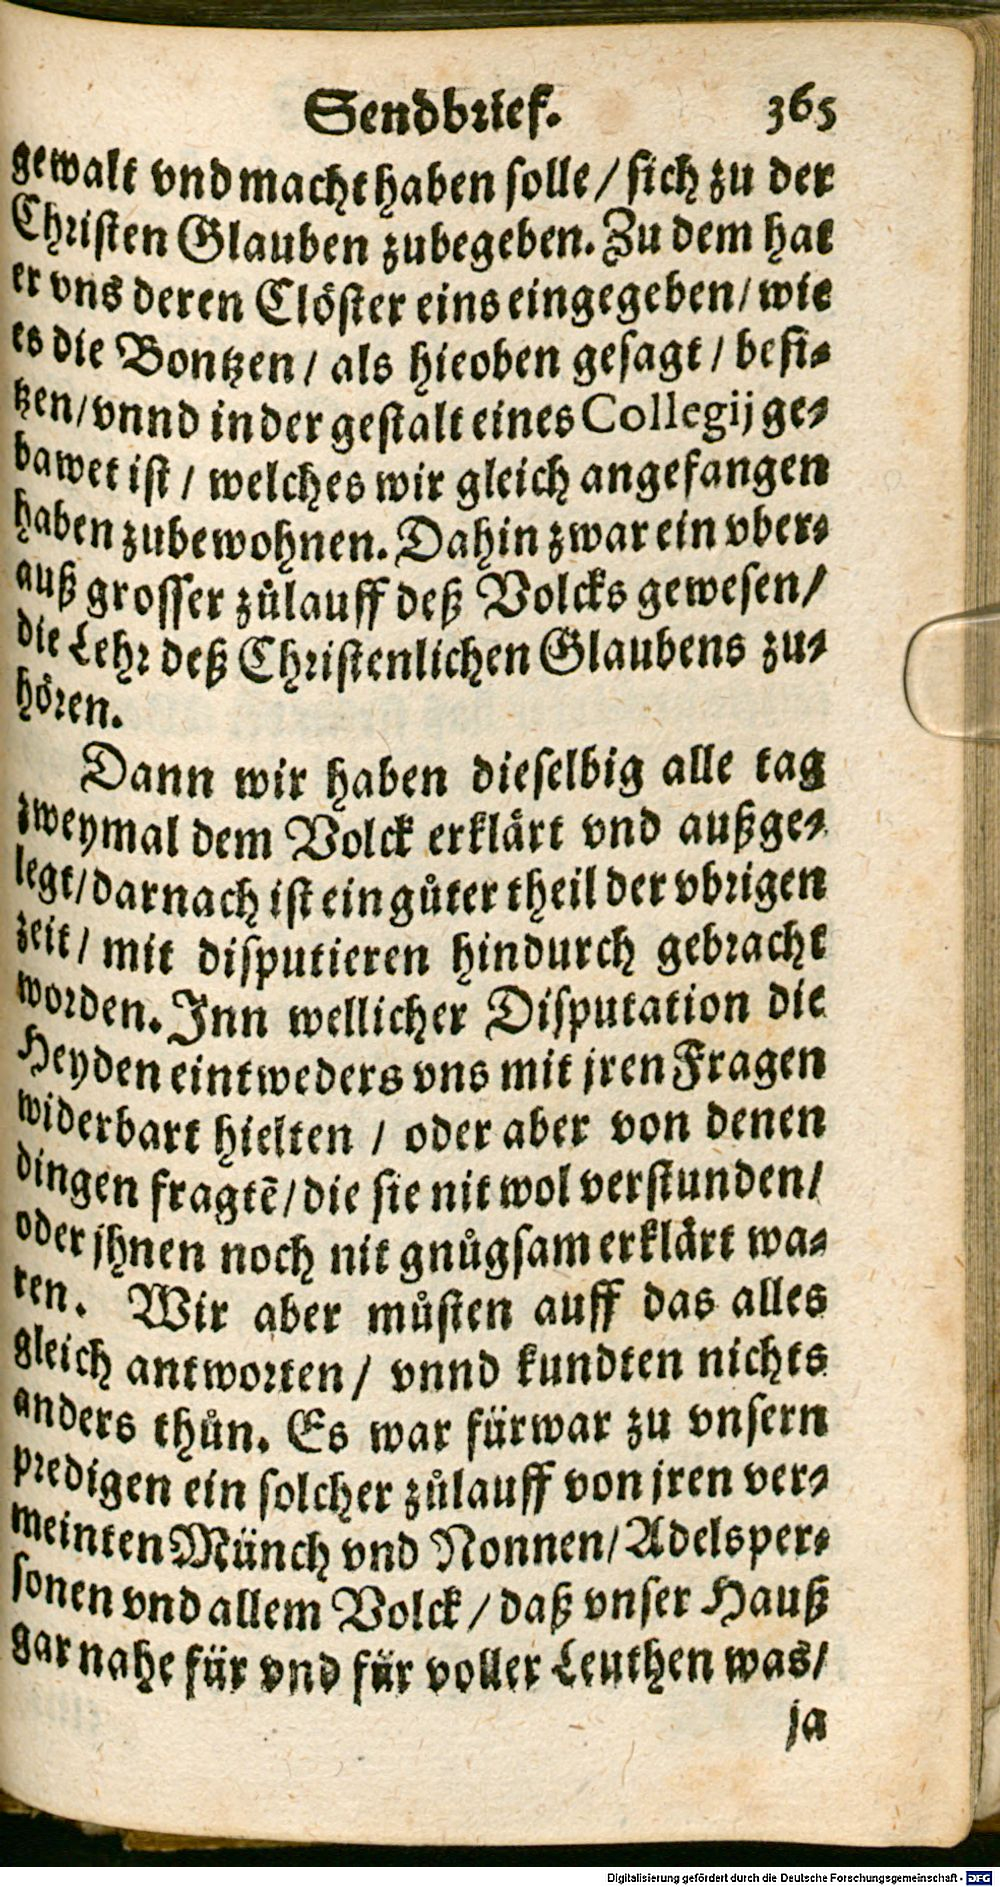 Sendbrief. 365
gewalt vnd macht haben solle / sich zu der
Christen Glauben zubegeben. Zu dem hat
er vns deren Clöster eins eingegeben / wie
es die Bontzen / als hieoben gesagt / besi-
tzen / vnnd in der gestalt eines Collegij ge-
bawet ist / welches wir gleich angefangen
haben zubewohnen. Dahin zwar ein vber-
auß grosser zůlauff deß Volcks gewesen /
die Lehr deß Christenlichen Glaubens zu-
hören.
Dann wir haben dieselbig alle tag
zweymal dem Volck erklärt vnd außge-
legt / darnach ist ein gůter theil der vbrigen
zeit / mit disputieren hindurch gebracht
worden. Inn wellicher Disputation die
Heyden eintweders vns mit jren Fragen
widerbart hielten / oder aber von denen
dingen fragtē / die sie nit wol verstunden /
oder jhnen noch nit gnůgsam erklärt wa-
ren. Wir aber můsten auff das alles
gleich antworten / vnnd kundten nichts
anders thůn. Es war fürwar zu vnsern
predigen ein solcher zůlauff von jren ver-
meinten Münch vnd Nonnen / Adelsper-
sonen vnd allem Volck / daß vnser Hauß
gar nahe für vnd für voller Leuthen was /
ja
Digitalisierung gefördert durch die Deutsche Forschungsgemeinschaft - DFG